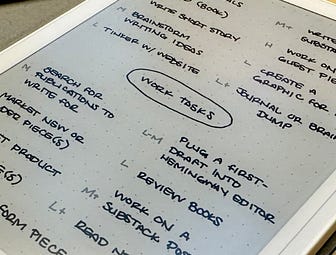 (BOOK)
WRITE SHORT STORY
N BRAINSTORM
WRITING IDEAS
L TINKER W/ WEBSITE
M+ WRITE
SUBST
H WORK ON
GUEST P
L CREATE A
GRAPHIC FOR
L+ JOURNAL OR BRAIN
DUMP
WORK TASKS
N SEARCH FOR
PUBLICATIONS TO
WRITE FOR
MARKET NEW OR
PIECE(S)
PRODUCT
(S)
FORM PIECE
L-M PLUG A FIRST-
DRAFT INTO
HEMINGWAY EDITOR
L REVIEW BOOKS
M+ WORK ON A
SUBSTACK POS
L+ READ